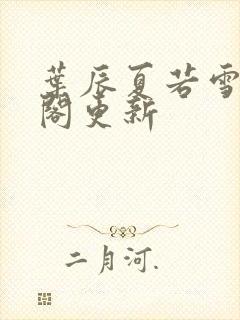 葉辰夏若雪
閣更新
二月河.